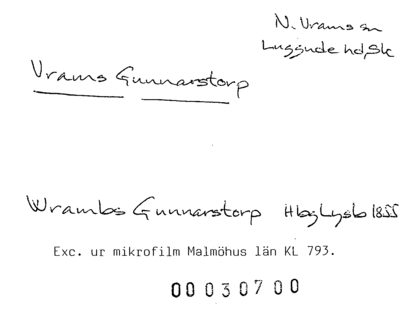 N. Vrams sn
Luggude hd, Sk
Vrams Gunnarstorp
Wrambs Gunnarstorp Hbg Lysb 1855
Exc. ur mikrofilm Malmöhus län KL 793.
00 030700